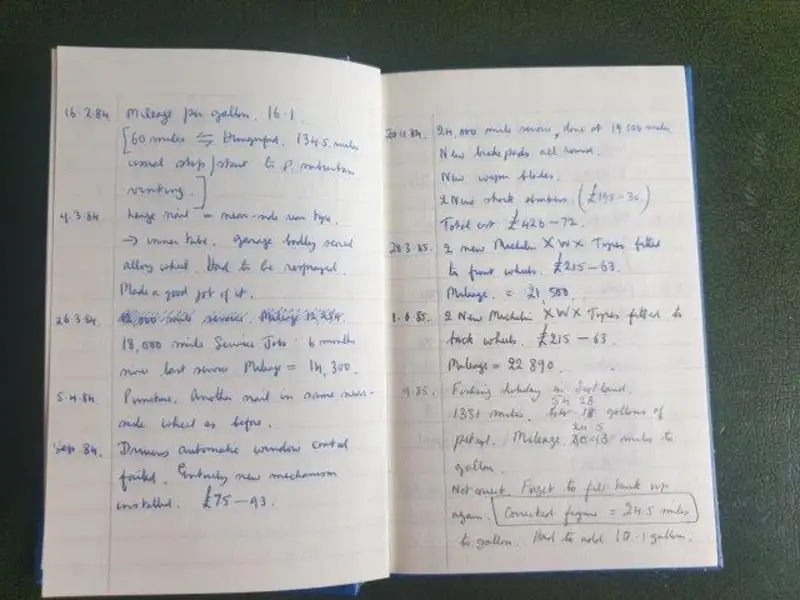 16.2.84 Mileage per gallon. 16.1
[60 miles ⇆ Hungerford. 134.5 miles
usual stop/start to p. suburban
working.]
4.3.84 Large nail in near-side rear tyre.
→ inner tube. Garage badly scored
alloy wheel. Had to be resprayed.
Made a good job of it.
26.3.84 12,000 mile service. Mileage 12,254
18,000 mile Service Jobs: 6 months
since last service Mileage = 14,300.
5.4.84 Puncture. Another nail in same near-
side wheel as before.
Sep 84. Drivers automatic window control
failed. Entirely new mechanism
installed. £75-93.
20.11.84. 24,000 mile service, done at 19 miles
New brake pads all round.
New wiper blades.
2 New shock absorbers. (£195-30)
Total cost £420-72.
28.3.85. 2 new Michelin XWX Tyres fitted
to front wheels. £215-63.
Mileage = 21,500.
1.6.85. 2 New Michelin XWX Tyres fitted to
back wheels. £215-63.
Mileage = 22890.
9.85. Fishing holiday in Scotland.
54 28
1331 miles. 18 gallons of
24.5
petrol. Mileage miles to
gallon.
Not correct. Forgot to fill tank up
again. Corrected figure = 24.5 miles
to gallon. Had to add 10.1 gallons.